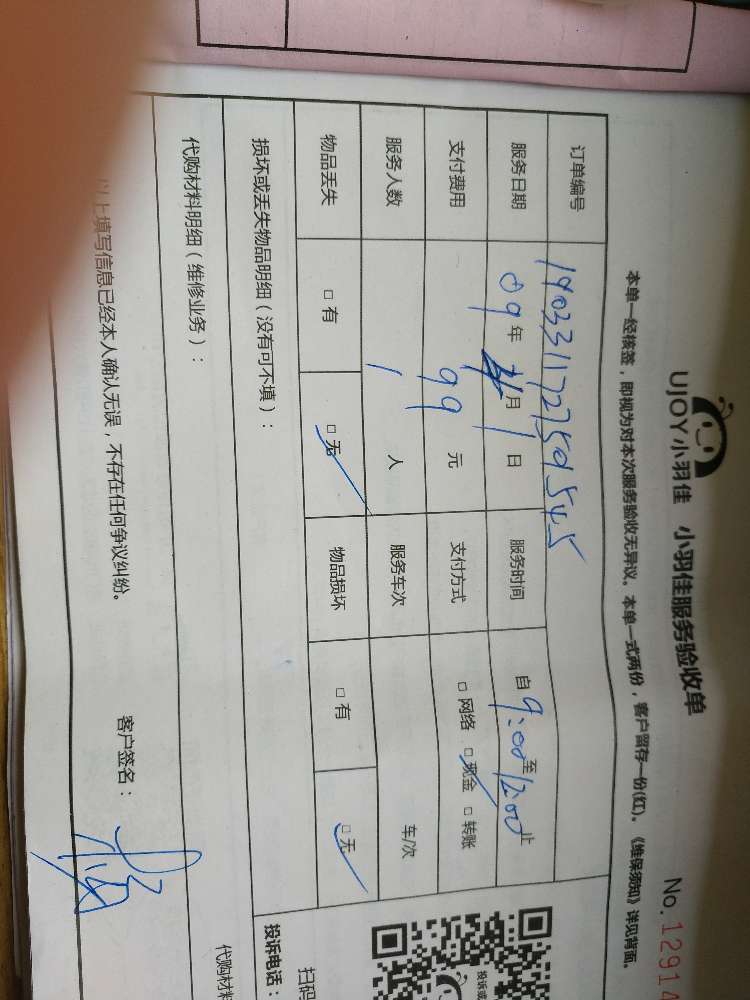 UJOY小羽佳 小羽佳服务验收单
No. 12914
本单一经核签，即视为对本次服务验收无异议。本单一式两份，客户留存一份(红)。《维保须知》详见背面。
订单编号 1903311727505545
服务日期 09年 月1日 服务时间 自9:00至12:00止
支付费用 99元 支付方式 □网络 □现金 □转账
服务人数 1人 服务车次 车/次
物品丢失 □有 □无 物品损坏 □有 □无
损坏或丢失物品明细（没有可不填）：
投诉电话：
扫码
投诉或
代购材料明细（维修业务）：
代购材料
以上填写信息已经本人确认无误，不存在任何争议纠纷。
客户签名：